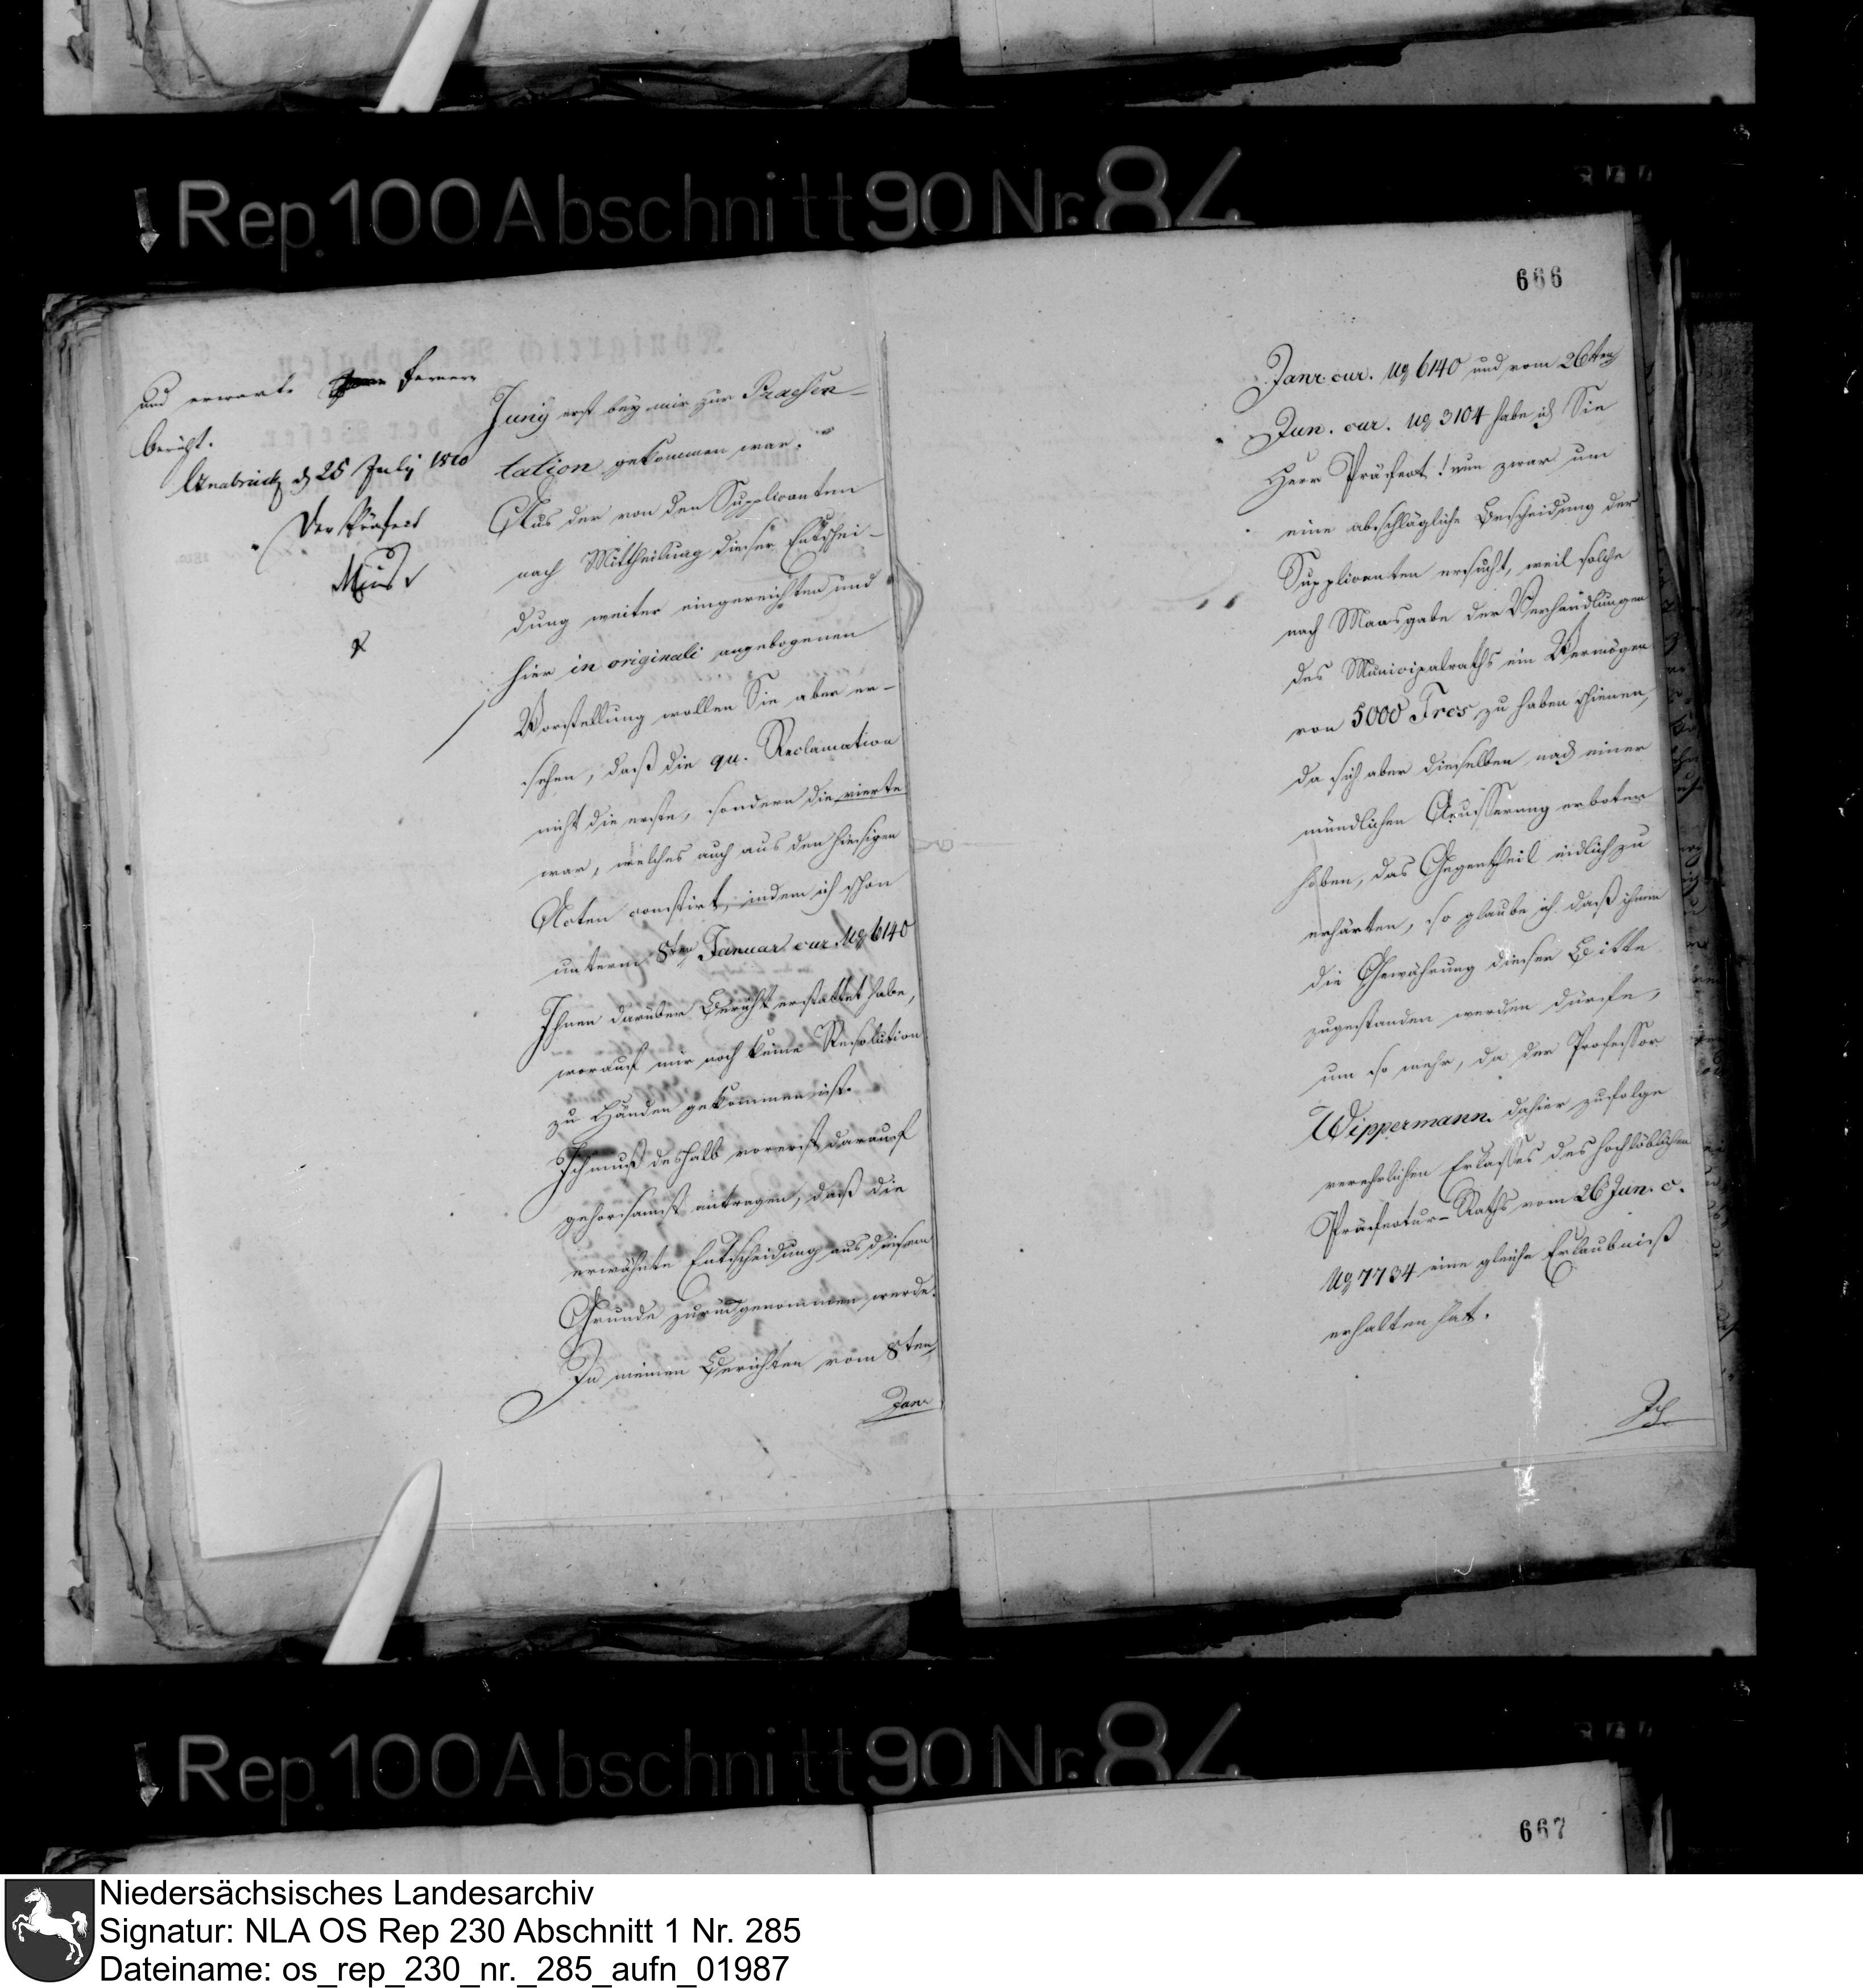 Rep. 100 Abschnitt 90 Nr. 84
666
und erwarte fernern
Bericht.
Osnabrück d 25 July 1810
Der Präfect
Juny erst bey mir zur Praesen-
tation gekommen war.
Aus der von den Supplicanten
nach Mittheilung dieser Entschei-
dung weiter eingereichten und
hier in originali angebogenen
Vorstellung wollen Sie aber er-
sehen, daß die qu. Reclamation
nicht die erste, sondern die vierte
war, welches auch aus den hiesigen
Acten constirt, indem ich schon
unterm 8ten Januar cur № 6140
Ihnen darüber Bericht erstattet habe,
worauf mir noch keine Resolution
zu Händen gekommen ist.
Ich muß deshalb vorerst darauf
gehorsamst antragen, daß die
erwähnte Entscheidung aus diesem
Grunde zurückgenommen werde.
In meinen Berichten vom 8ten
Janr
Janr. cur. № 6140 und vom 26ten
Jun. cur. № 3104 habe ich Sie
Herr Präfect! nun zwar um
eine abschlägliche Bescheidung der
Supplicanten ersucht, weil solche
nach Maasgabe der Verhandlungen
des Municipalraths ein Vermögen
von 5000 Frcs zu haben schienen,
da sich aber dieselben nach einer
mündlichen Aeusserung erboten
haben, das Gegentheil eidlich zu
erhärten, so glaube ich daß ihnen
die Gewährung dieser Bitte
zugestanden werden dürfte,
um so mehr, da der Professor
Wippermann dahier zufolge
verehrlichen Erlasses des hochlöblichen
Präfectur-Raths vom 26 Jun. c.
№ 7734 eine gleiche Erlaubniß
erhalten hat.
Ich
Rep. 100 Abschnitt 90 Nr. 84
667
Niedersächsisches Landesarchiv
Signatur: NLA OS Rep 230 Abschnitt 1 Nr. 285
Dateiname: os_rep_230_nr._285_aufn_01987